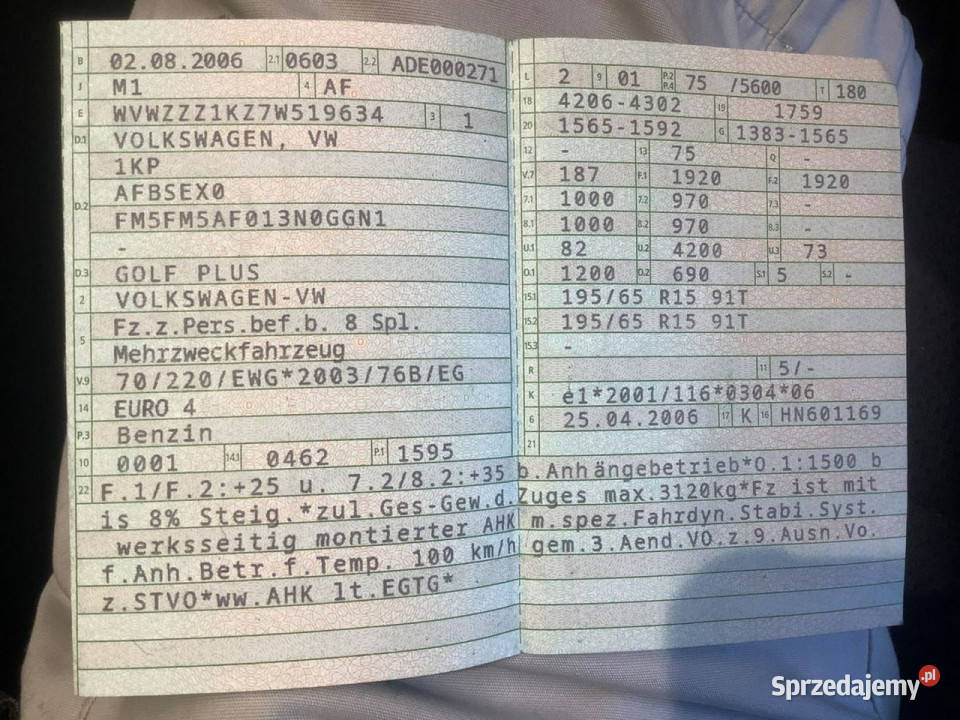 B 02.08.2006 2.1 0603 2.2 ADE000271
J M1 4 AF
E WVWZZZ1KZ7W519634 3 1
D.1 VOLKSWAGEN, VW
1KP
D.2 AFBSEX0
FM5FM5AF013N0GGN1
-
D.3 GOLF PLUS
2 VOLKSWAGEN-VW
5 Fz.z.Pers.bef.b. 8 Spl.
Mehrzweckfahrzeug
V.9 70/220/EWG*2003/76B/EG
14 EURO 4
P.3 Benzin
10 0001 14.1 0462 P.1 1595
L 2 9 01 P.2 P.4 75 /5600 T 180
18 4206-4302 19 1759
20 1565-1592 G 1383-1565
12 - 13 75 Q -
V.7 187 F.1 1920 F.2 1920
7.1 1000 7.2 970 7.3 -
8.1 1000 8.2 970 8.3 -
U.1 82 U.2 4200 U.3 73
O.1 1200 O.2 690 S.1 5 S.2 -
15.1 195/65 R15 91T
15.2 195/65 R15 91T
15.3 -
R 11 5/-
K e1*2001/116*0304*06
6 25.04.2006 17 K 16 HN601169
21
22 F.1/F.2:+25 u. 7.2/8.2:+35 b.Anhängebetrieb*O.1:1500 b
is 8% Steig.*zul.Ges-Gew.d.Zuges max.3120kg*Fz ist mit
werksseitig montierter AHK m.spez.Fahrdyn.Stabi.Syst.
f.Anh.Betr.f.Temp. 100 km/h gem.3.Aend.VO.z.9.Ausn.Vo.
z.STVO*ww.AHK lt.EGTG*
Sprzedajemy.pl